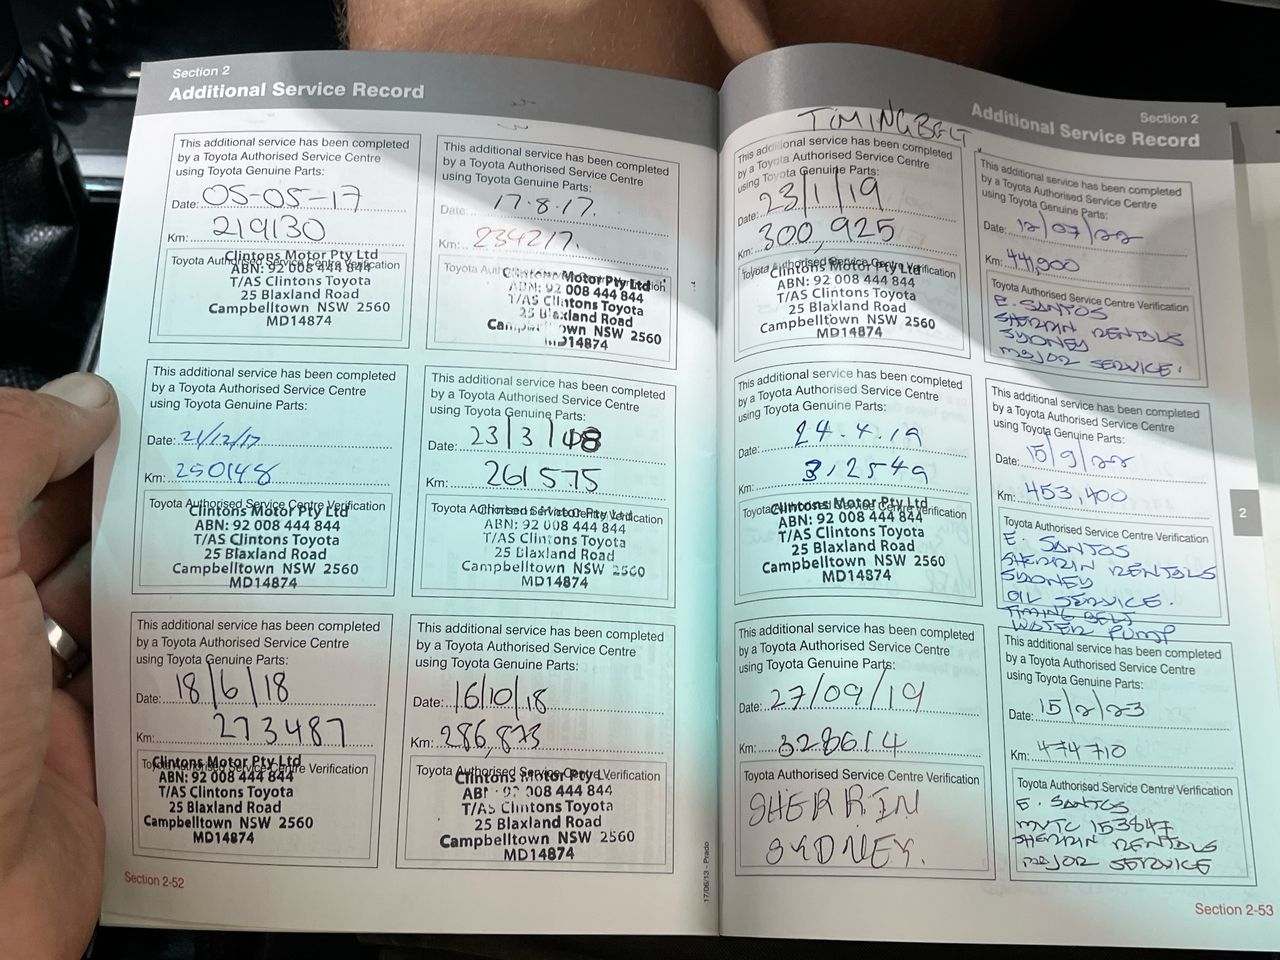 Section 2
Additional Service Record
This additional service has been completed
by a Toyota Authorised Service Centre
using Toyota Genuine Parts:
Date: 05-05-17
Km: 219130
Toyota Authorised Service Centre Verification
Clintons Motor Pty Ltd
ABN: 92 008 444 844
T/AS Clintons Toyota
25 Blaxland Road
Campbelltown NSW 2560
MD14874
This additional service has been completed
by a Toyota Authorised Service Centre
using Toyota Genuine Parts:
Date: 17.8.17.
Km: 234217.
Clintons Motor Pty Ltd
ABN: 92 008 444 844
T/AS Clintons Toyota
25 Blaxland Road
Campbelltown NSW 2560
MD14874
This additional service has been completed
by a Toyota Authorised Service Centre
using Toyota Genuine Parts:
Date: 21/12/17
Km: 250148
Toyota Authorised Service Centre Verification
Clintons Motor Pty Ltd
ABN: 92 008 444 844
T/AS Clintons Toyota
25 Blaxland Road
Campbelltown NSW 2560
MD14874
This additional service has been completed
by a Toyota Authorised Service Centre
using Toyota Genuine Parts:
Date: 23/3/18
Km: 261575
Toyota Authorised Service Centre Verification
Clintons Motor Pty Ltd
ABN: 92 008 444 844
T/AS Clintons Toyota
25 Blaxland Road
Campbelltown NSW 2560
MD14874
This additional service has been completed
by a Toyota Authorised Service Centre
using Toyota Genuine Parts:
Date: 18/6/18
Km: 273487
Toyota Authorised Service Centre Verification
Clintons Motor Pty Ltd
ABN: 92 008 444 844
T/AS Clintons Toyota
25 Blaxland Road
Campbelltown NSW 2560
MD14874
This additional service has been completed
by a Toyota Authorised Service Centre
using Toyota Genuine Parts:
Date: 16/10/18
Km: 286,873
Toyota Authorised Service Centre Verification
Clintons Motor Pty Ltd
ABN: 92 008 444 844
T/AS Clintons Toyota
25 Blaxland Road
Campbelltown NSW 2560
MD14874
Section 2-52
17/06/13 - Prado
Section 2
Additional Service Record
TIMING BELT.
This additional service has been completed
by a Toyota Authorised Service Centre
using Toyota Genuine Parts:
Date: 23/1/19
Km: 300,925
Toyota Authorised Service Centre Verification
Clintons Motor Pty Ltd
ABN: 92 008 444 844
T/AS Clintons Toyota
25 Blaxland Road
Campbelltown NSW 2560
MD14874
This additional service has been completed
by a Toyota Authorised Service Centre
using Toyota Genuine Parts:
Date: 12/07/22
Km:
Toyota Authorised Service Centre Verification
E. SANTOS
SHERRIN RENTALS
SYDNEY
MAJOR SERVICE.
This additional service has been completed
by a Toyota Authorised Service Centre
using Toyota Genuine Parts:
Date: 24.4.19
Km: 312549
Toyota Authorised Service Centre Verification
Clintons Motor Pty Ltd
ABN: 92 008 444 844
T/AS Clintons Toyota
25 Blaxland Road
Campbelltown NSW 2560
MD14874
This additional service has been completed
by a Toyota Authorised Service Centre
using Toyota Genuine Parts:
Date: 15/9/22
Km: 453,400
Toyota Authorised Service Centre Verification
E. SANTOS
SHERRIN RENTALS
SYDNEY
OIL SERVICE.
TIMING BELT
WATER PUMP
2
This additional service has been completed
by a Toyota Authorised Service Centre
using Toyota Genuine Parts:
Date: 27/09/19
Km: 328614
Toyota Authorised Service Centre Verification
SHERRIN
SYDNEY.
This additional service has been completed
by a Toyota Authorised Service Centre
using Toyota Genuine Parts:
Date: 15/2/23
Km: 474710
Toyota Authorised Service Centre Verification
E. SANTOS
MVTC 153847
SHERRIN RENTALS
MAJOR SERVICE
Section 2-53